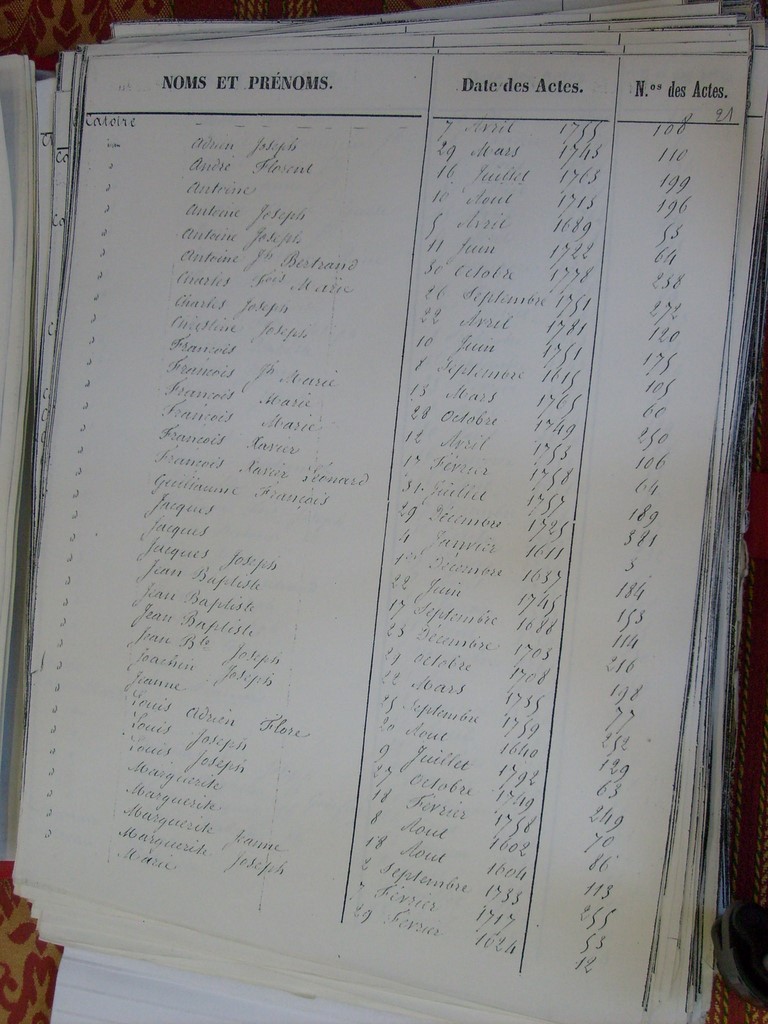 NOMS ET PRÉNOMS. Date des Actes. N.os des Actes.
21
Catoire - - - - 7 Avril 1755 108
" Adrien Joseph 29 Mars 1743 110
" André Florent 16 Juillet 1763 199
" Antoine 10 Aout 1713 196
" Antoine Joseph 5 Avril 1689 53
" Antoine Joseph 11 Juin 1722 64
" Antoine Jh Bertrand 30 Octobre 1778 238
" Charles Fois Marie 26 Septembre 1751 272
" Charles Joseph 22 Avril 1781 120
" Joseph 10 Juin 1751 175
" François 8 Septembre 1615 105
" François Jh Marie 13 Mars 1765 60
" François Marie 28 Octobre 1749 250
" François Marie 12 Avril 1753 106
" François Xavier 17 Février 1758 64
" François Xavier Léonard 31 Juillet 1757 189
" Guillaume François 29 Décembre 1725 321
" Jacques 4 Janvier 1611 3
" Jacques 1er Décembre 1637 184
" Jacques Joseph 22 Juin 1745 153
" Jean Baptiste 17 Septembre 1688 114
" Jean Baptiste 23 Décembre 1703 216
" Jean Baptiste 21 octobre 1708 198
" Jean Bte Joseph 22 Mars 1755 77
" Joachin Joseph 25 Septembre 1759 252
" Jeanne 20 Aout 1640 129
" Louis Adrien Flore 9 Juillet 1792 63
" Louis Joseph 27 Octobre 1749 249
" Louis Joseph 18 Février 1758 70
" Marguerite 8 Aout 1602 86
" Marguerite 18 Aout 1604 113
" Marguerite Jeanne 2 Septembre 1733 255
" Marguerite Joseph 7 Février 1717 53
" Marie 29 Février 1624 12